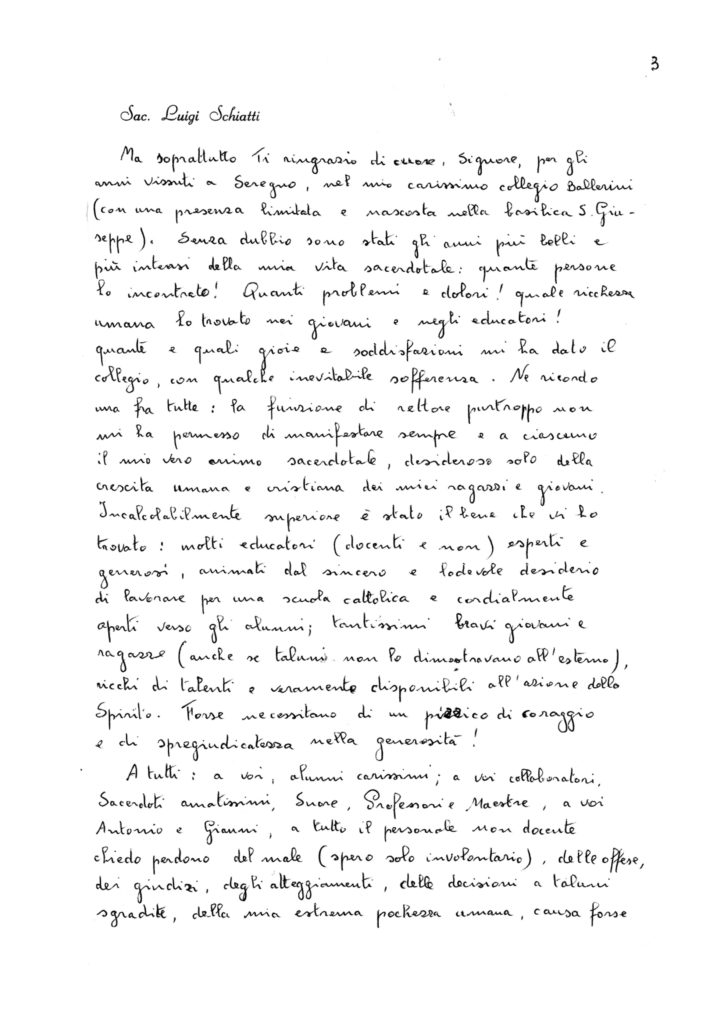 3
Sac. Luigi Schiatti
Ma soprattutto Ti ringrazio di cuore, Signore, per gli
anni vissuti a Seregno, nel mio carissimo collegio Ballerini
(con una presenza limitata e nascosta nella basilica S. Giu-
seppe). Senza dubbio sono stati gli anni più belli e
più intensi della mia vita sacerdotale: quante persone
ho incontrato! Quanti problemi e dolori! quale ricchezza
umana ho trovato nei giovani e negli educatori!
quante e quali gioie e soddisfazioni mi ha dato il
collegio, con qualche inevitabile sofferenza. Ne ricordo
una fra tutte: la funzione di rettore purtroppo non
mi ha permesso di manifestare sempre e a ciascuno
il mio vero animo sacerdotale, desideroso solo della
crescita umana e cristiana dei miei ragazzi e giovani.
Incalcolabilmente superiore è stato il bene che vi ho
trovato: molti educatori (docenti e non) esperti e
generosi, animati dal sincero e lodevole desiderio
di lavorare per una scuola cattolica e cordialmente
aperti verso gli alunni; tantissimi bravi giovani e
ragazze (anche se taluni non lo dimostravano all'esterno),
ricchi di talenti e veramente disponibili all'azione dello
Spirito. Forse necessitano di un pizzico di coraggio
e di spregiudicatezza nella generosità!
A tutti: a voi, alunni carissimi; a voi collaboratori,
Sacerdoti amatissimi, Suore, Professori e Maestre, a voi
Antonio e Gianni, a tutto il personale non docente
chiedo perdono del male (spero solo involontario), delle offese,
dei giudizi, degli atteggiamenti, delle decisioni a taluni
sgradite, della mia estrema pochezza umana, causa forse